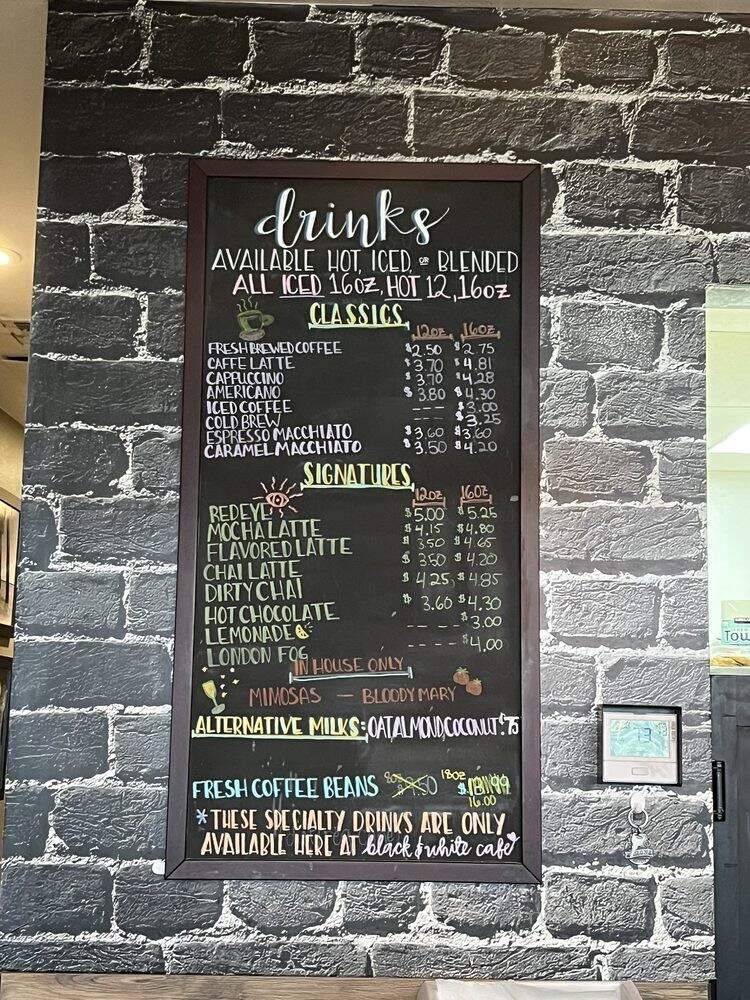 drinks
AVAILABLE HOT, ICED, OR BLENDED
ALL ICED 16OZ, HOT 12, 16OZ
CLASSICS
12OZ 16OZ
FRESH BREWED COFFEE $2.50 $2.75
CAFFE LATTE $3.70 $4.81
CAPPUCCINO $3.70 $4.28
AMERICANO $3.80 $4.30
ICED COFFEE --- $3.00
COLD BREW --- $3.25
ESPRESSO MACCHIATO $3.60 $3.60
CARAMEL MACCHIATO $3.50 $4.20
SIGNATURES
12OZ 16OZ
REDEYE $5.00 $5.25
MOCHA LATTE $4.15 $4.80
FLAVORED LATTE $3.50 $4.65
CHAI LATTE $3.50 $4.20
DIRTY CHAI $4.25 $4.85
HOT CHOCOLATE $3.60 $4.30
LEMONADE ---- $3.00
LONDON FOG ---- $4.00
IN HOUSE ONLY
MIMOSAS — BLOODY MARY
ALTERNATIVE MILKS: OAT, ALMOND, COCONUT $.75
FRESH COFFEE BEANS 8OZ 18OZ
16.00
*THESE SPECIALTY DRINKS ARE ONLY
AVAILABLE HERE AT black & white cafe